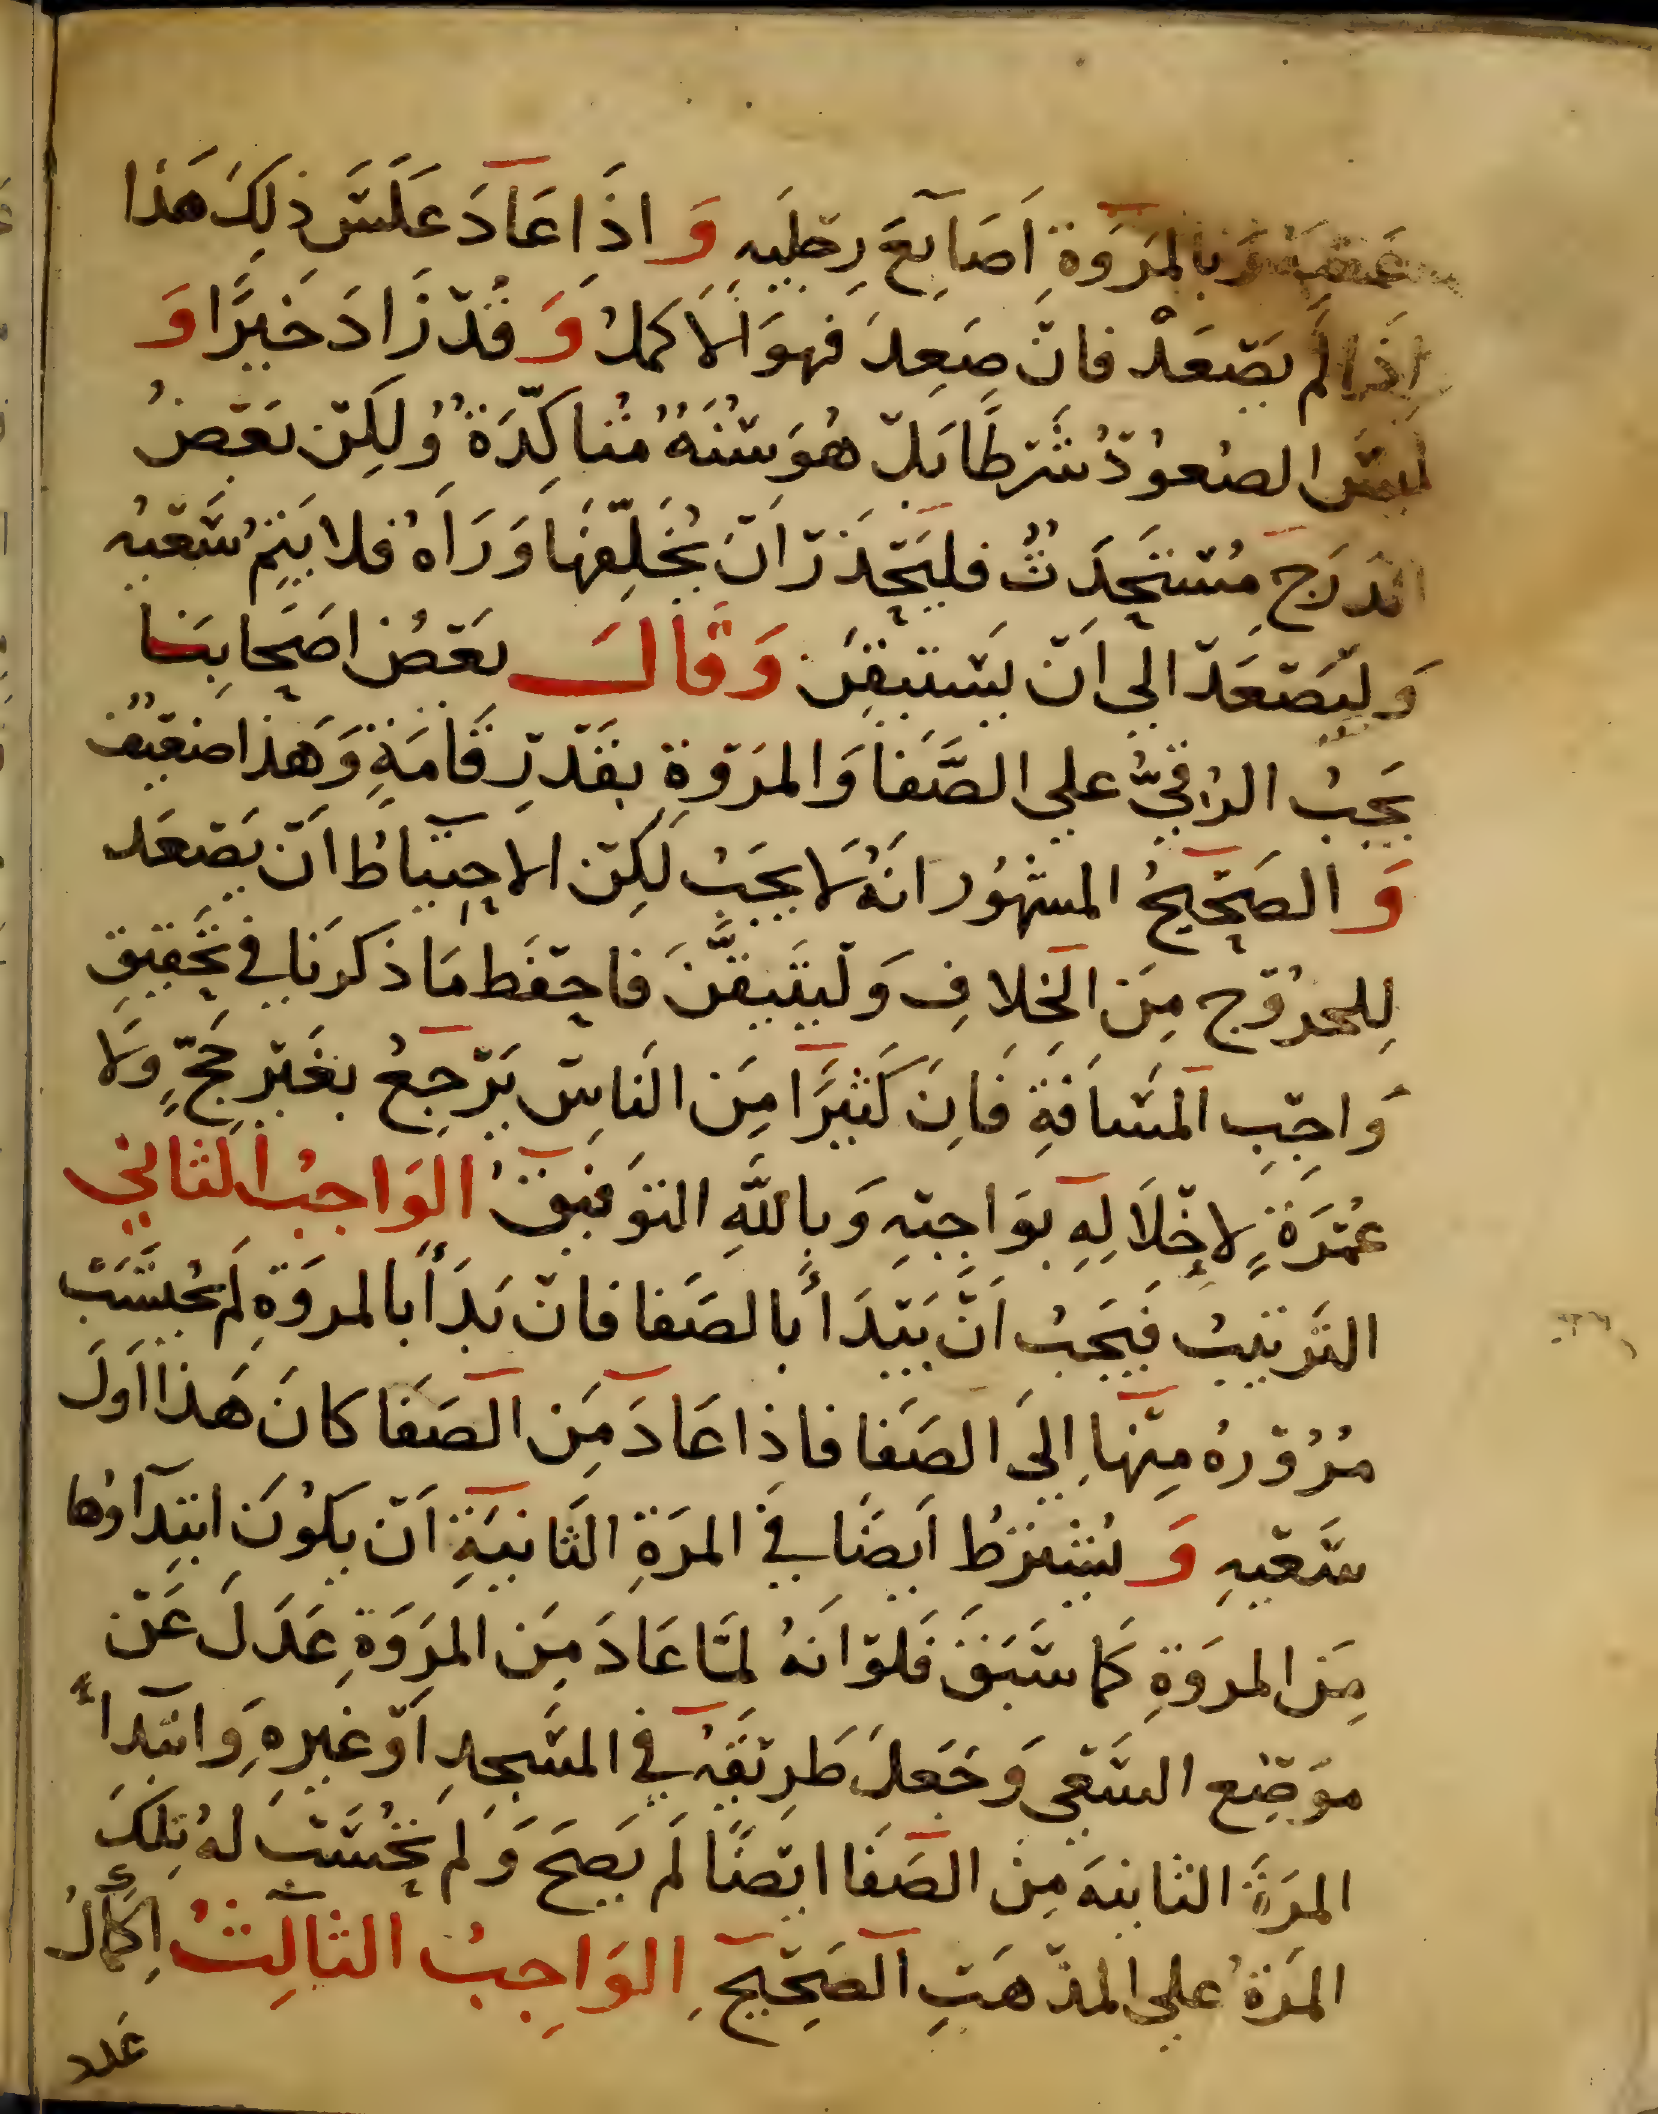 عَقِبَهُ وَبِالمَرْوَةِ اَصَابِعَ رِجْلَيهِ وَ اذَا عَادَ عَكَسَ ذلِكَ هَذا
اِذَا لَم يَصْعَدْ فانْ صَعِدَ فهوَ الاَكملُ وَقَدْ زَادَ خَيْرًا وَ
ليسَ الصُعوُدُ شَرْطًا بَلْ هُوَ سُنَةٌ مُتَاكِّدَةٌ وَلكِنْ بَعْضُ
الدَرَجِ مُسْتَحْدَثٌ فليَحْذَرْ اَنْ يُخَلِّفَهَا وَرَاهُ فلا يَتِمُ سَعْيُه
وَليَصْعَدْ الى اَنْ يَسْتَيقِنَ وَقَالَ بَعْضُ اصَحَابِنَا
يَجِبُ الرُقيُّ على الصَّفَا وَالمرْوَةِ بقَدْرِ قَامَةٍ وَهَذا ضَعيْفٌ
وَ الصَحِيْحُ المشهُور انَهُ لاَ يجَبُ لَكِنْ الاحِتيَاطُ اَنْ يَصْعَد
لِلخرُوْج مِنَ الخِلافِ وَليَتَيقَّنَ فاحْفَظ مَا ذكرنَا في تحَقيقِ
وَاجِبِ المسَافَةِ فَاِنَ كَثيْرًا مِنَ النَاسِ يَرْجِعُ بغَيْرِ حَجٍّ وَلا
عُمْرَةٍ لاِخْلاَلِهِ بوَاجِبِهِ وَبِاللَّهِ التوَفيقُ الوَاجبُ الثاني
التَرتيبُ فَيَجَبُ اَنْ يَبْدَأَ بالصَفا فانْ بَدَأَ بالمروَةِ لَم يحُسَبْ
مرُوُره مِنْهَا اِلىَ الصَفا فاذا عَادَ مِنَ الصَفَا كانَ هَذا اَولَ
سَعْيهِ وَ يُشترَطُ اَيضًا في المرَةِ الثَانيَةِ اَنْ يَكوُنَ ابتِدَاوُها
مِنَ المروَةِ كَما سَبَقَ فَلوْ انَهُ لمَّا عَادَ مِنَ المرَوَةِ عَدَلَ عَنْ
موَضِع السَعْي وَجَعَلَ طَرِيْقَهُ في المسَجِدِ اَوْ غيرِهِ وَابتَدَأَ
المرَةَ الثانيَه مِنَ الصَفَا ايْضًا لَم يَصِحَ وَلَم تحُسَبْ لهُ تِلكَ
المرَةُ على المذْهَبِ الصَحِيْحِ الوَاجِبُ الثالِثُ اِكمَالُ
عَدد